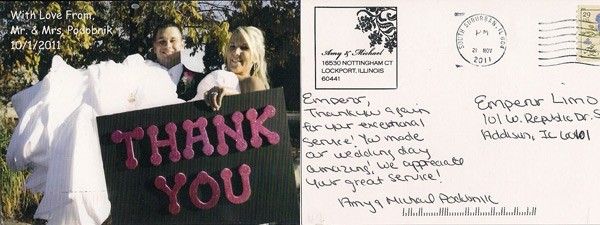 With Love From,
Mr. & Mrs. Podobnik
10/1/2011
THANK
YOU
Amy & Michael
16530 NOTTINGHAM CT
LOCKPORT, ILLINOIS
60441
SOUTH SUBURBAN, IL 604
21 NOV
2011
29
Emperor,
Thank you again
for your exceptional
service! You made
our wedding day
amazing! We appreciate
your great service!
Amy & Michael Podobnik
Emperor Limo
101 W. Republic Dr. S
Addison, IL 60101